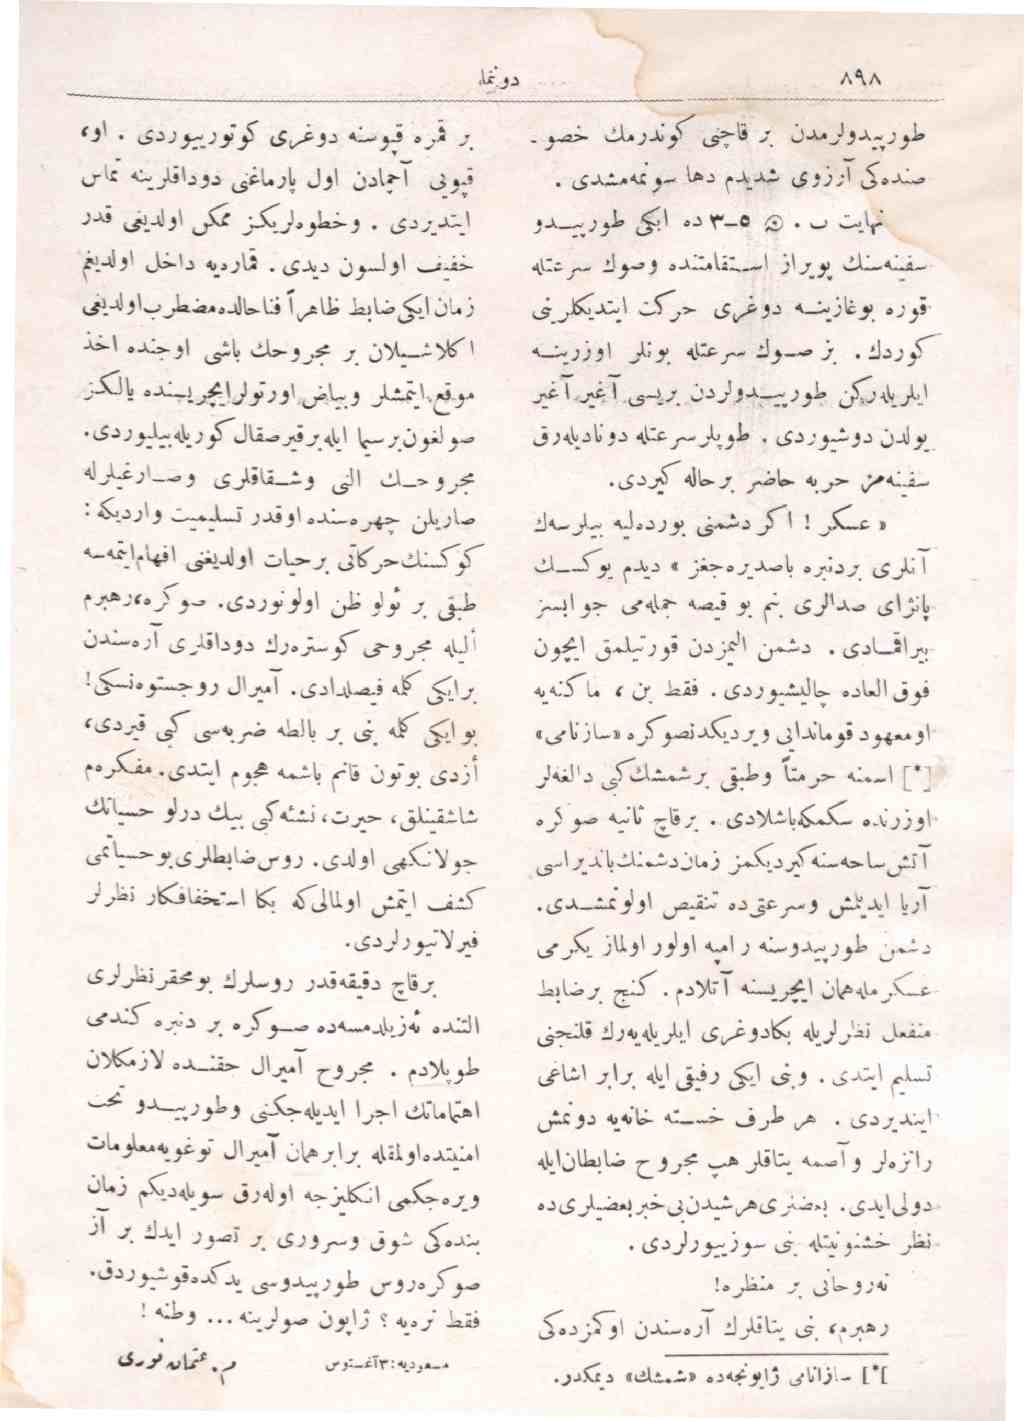 ٨٩٨
دونما
طورپیدولرمدن بر قاچنی كوندرمك خصو-
صنده‌كی آرزوی شدیدم دها سونمه‌مشدی .
نهایت ب . ن ٥-٣ ده ایكی طورپیـدو
سفینه‌سنك پویراز استقامتنده وصوك سرعتله
قوره بوغازینـه دوغری حركت ایتدیكلرینی
كوردك. بز صـوك سرعتله بونلر اوزرینـه
ایلریلەركن طورپیـدولردن بریسی آغیر آغیر
یولدن دوشیوردی . طوپلر سرعتله دونادیله‌رق
سفینه‌مز حربه حاضر برحاله كیردی.
« عسكر ! اكر دشمنی بورده‌لیه بیلرسه‌ك
آنلری بردنبره باصدیره‌جغز » دیدم یوكسـك
پانژای صدالری بنم بو قیصه جمله‌می جوابسز
بیراقمـادی . دشمن الیمزدن قورتیلمق ایچون
فوق العاده چالیشیوردی . فقط بن ، ماكنه‌یه
اومعهود قوماندایی ویردیكدنصوكره «سازنامی»
[*] اسمنه حرمتاً وطبقی برشمشك‌كبی دالغه‌لر
اوزرنده سكمكه‌باشلادی . برقاچ ثانیه صوكره
آتش‌ساحه‌سنه كیردیكمز زمان‌دشمنك‌باندیراسی
آریا ایدیلمش وسرعتی‌ده تنقیص اولونمشـدی.
دشمن طورپیدوسنه رامپه اولور اولماز یكرمی
عسكرمله‌همان ایچریسنه آتلادم . كنج برضابط
منفعل نظرلریله بكادوغری ایلریله‌یه‌رك قلنجنی
تسلیم ایتدی . وبنی ایكی رفیقی ایله برابر اشاغی
ایندیردی . هر طرف خستـه خانه‌یه دونمش
رانزه‌لر و آصمه یتاقلر هپ مجروح ضابطان‌ایله
دولی‌ایدی. بعضزی هرشیدن‌بی‌خبر بعضیلری‌ده
نظر خشنونیتله بنی سوزییورلردی .
نه‌روحانی بر منظره!
رهبرم، بنی یتاقلرك آره‌سندن اوكمزده‌كی
[*] سازانامی ژاپونجه‌ده «شمشك» دیمكدر.
بر قمره قپوسنه دوغری كوتورییوردی . او،
قپویی آچمادن اول پارماغنی دوداقلرینه تماس
ایتدیردی . وخطوه‌لریكـز ممكن اولدیغی قدر
خفیف اولسون دیدی. قماره‌یه داخل اولدیغم
زمان‌ایكی‌ضابط ظاهراً فناحالده‌مضطرب‌اولدیغی
اكلاشـیلان بر مجروحك باشی اوجنده اخذ
موقع‌ایتمشلر وبیاض‌اورتولرایچریسنده یالكـز
صولغون‌برسیما ایله‌برقیرصقال‌كوریله‌بیلیوردی.
مجروحـك النی وشـقاقلری وصـارغیلرله
صاریلن چهره‌سنده اوقدر تسلیمیت واردیكه:
كوكسنك‌حركاتی برحیات اولدیغنی افهام‌ایتمه‌سه
طبقی بر ئولو ظن اولونوردی. صوكره،رهبرم
الیله مجروحی كوستره‌رك دوداقلری آره‌سندن
برایكی كلمه فیصلدادی. آمیرال روجستوه‌نسكی!
بو ایكی كلمه بنی بر بالطه ضربه‌سی كبی قیردی،
أزدی بوتون قانم باشمه هجوم ایتدی. مفكره‌م
شاشقینلق، حیرت، نشئه‌كبی بیك درلو حسیاتك
جولانكهی اولدی. روس‌ضابطلری‌بوحسیاتمی
كشف ایتمش اولمالی‌كه بكا استخفافكار نظرلر
فیرلاتیورلردی.
برقاچ دقیقه‌قدر روسلرك بومحقرنظرلری
التنده ئه‌زیلدمسه‌ده صـوكره بر دنبره كندمی
طوپلادم . مجروح آمیرال حقنـده لازمكلان
اهتماماتك اجرا ایدیله‌جكنی وطورپیـدو تحت
امنیتده‌اولمقله برابرهمان آمیرال توغویه‌معلومات
ویره‌جكمی انكلیزجه اوله‌رق سویله‌دیكم زمان
بنده‌كی شوق وسروری بر تصور ایدك بر آز
صوكره‌روس طورپیدوسی یدكده‌قوشیوردق.
فقط نره‌یه ؟ ژاپون صولرینه... وطنه !
مسعودیه:٣آغستوس
م . عثمان نوری